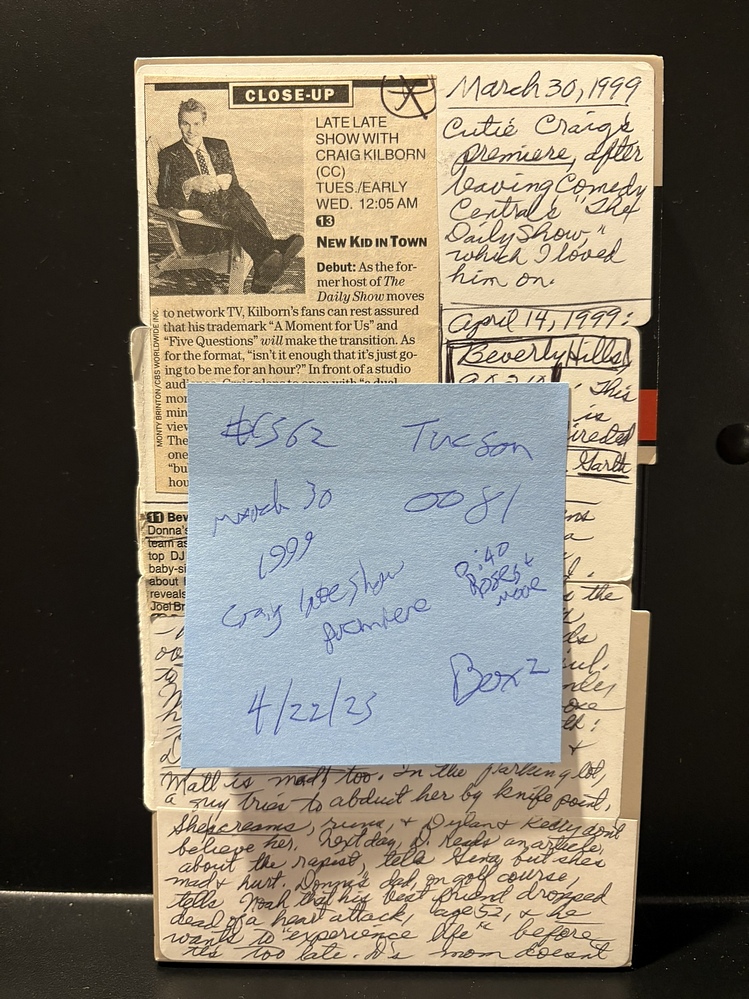 CLOSE-UP
LATE LATE
SHOW WITH
CRAIG KILBORN
(CC)
TUES./EARLY
WED. 12:05 AM
13
NEW KID IN TOWN
Debut: As the for-
mer host of The
Daily Show moves
to network TV, Kilborn's fans can rest assured
that his trademark "A Moment for Us" and
"Five Questions" will make the transition. As
for the format, "isn't it enough that it's just go-
ing to be me for an hour?" In front of a studio
MONTY BRINTON/CBS WORLDWIDE INC.
March 30, 1999
Cutie Craig's
premiere, after
leaving Comedy
Central's "The
Daily Show,"
which I loved
him on.
April 14, 1999:
Beverly Hills,
90210
This
is
Garth
11 Bev
Donna's
team as
top DJ
baby-si
about
reveals
Joel Br
6562 Tucson
March 30 0081
1999
Craig late show
premiere
4/22/25 Box 2
the
&
Matt is mad, too. In the parking lot,
a guy tries to abduct her by knife point,
She screams, runs, & Dylan & Kelly don't
believe her. Next day, D. reads an article
about the rapist, tells Gina, but she's
mad & hurt. Donna's dad, on golf course,
tells Noah that his best friend dropped
dead of a heart attack, age 52, & he
wants to "experience life" before
it's too late. D's mom doesn't